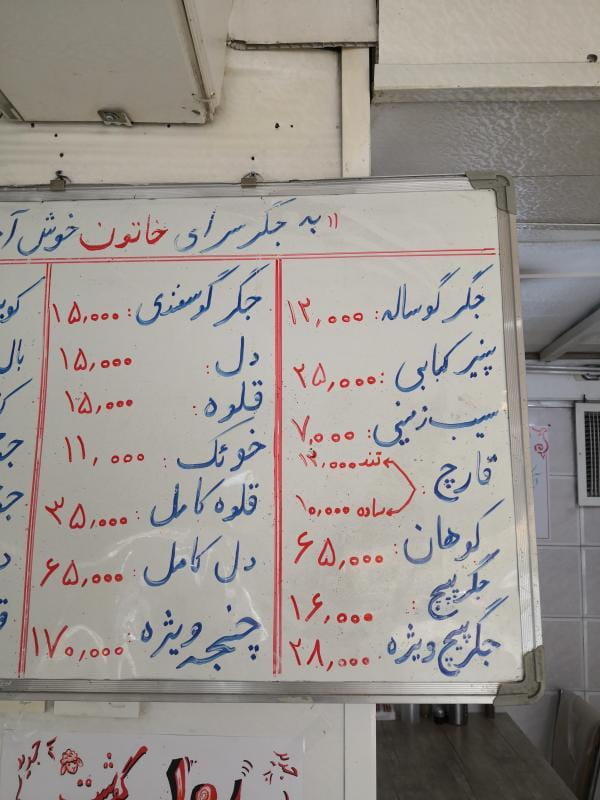 به جگرسرای خاتون خوش
جگر گوساله: ۱۲,۰۰۰
پنیر کبابی: ۲۵,۰۰۰
سیب زمینی: ۷,۰۰۰
قارچ: تند ۱۲,۰۰۰
ساده ۱۰,۰۰۰
کوهان: ۶۵,۰۰۰
جگرپیچ: ۱۶,۰۰۰
جگرپیچ ویژه: ۲۸,۰۰۰
جگر گوسفندی: ۱۵,۰۰۰
دل: ۱۵,۰۰۰
قلوه: ۱۵,۰۰۰
خوئک: ۱۱,۰۰۰
قلوه کامل: ۳۵,۰۰۰
دل کامل: ۶۵,۰۰۰
چنجه ویژه: ۱۷۰,۰۰۰
جدید
جدید